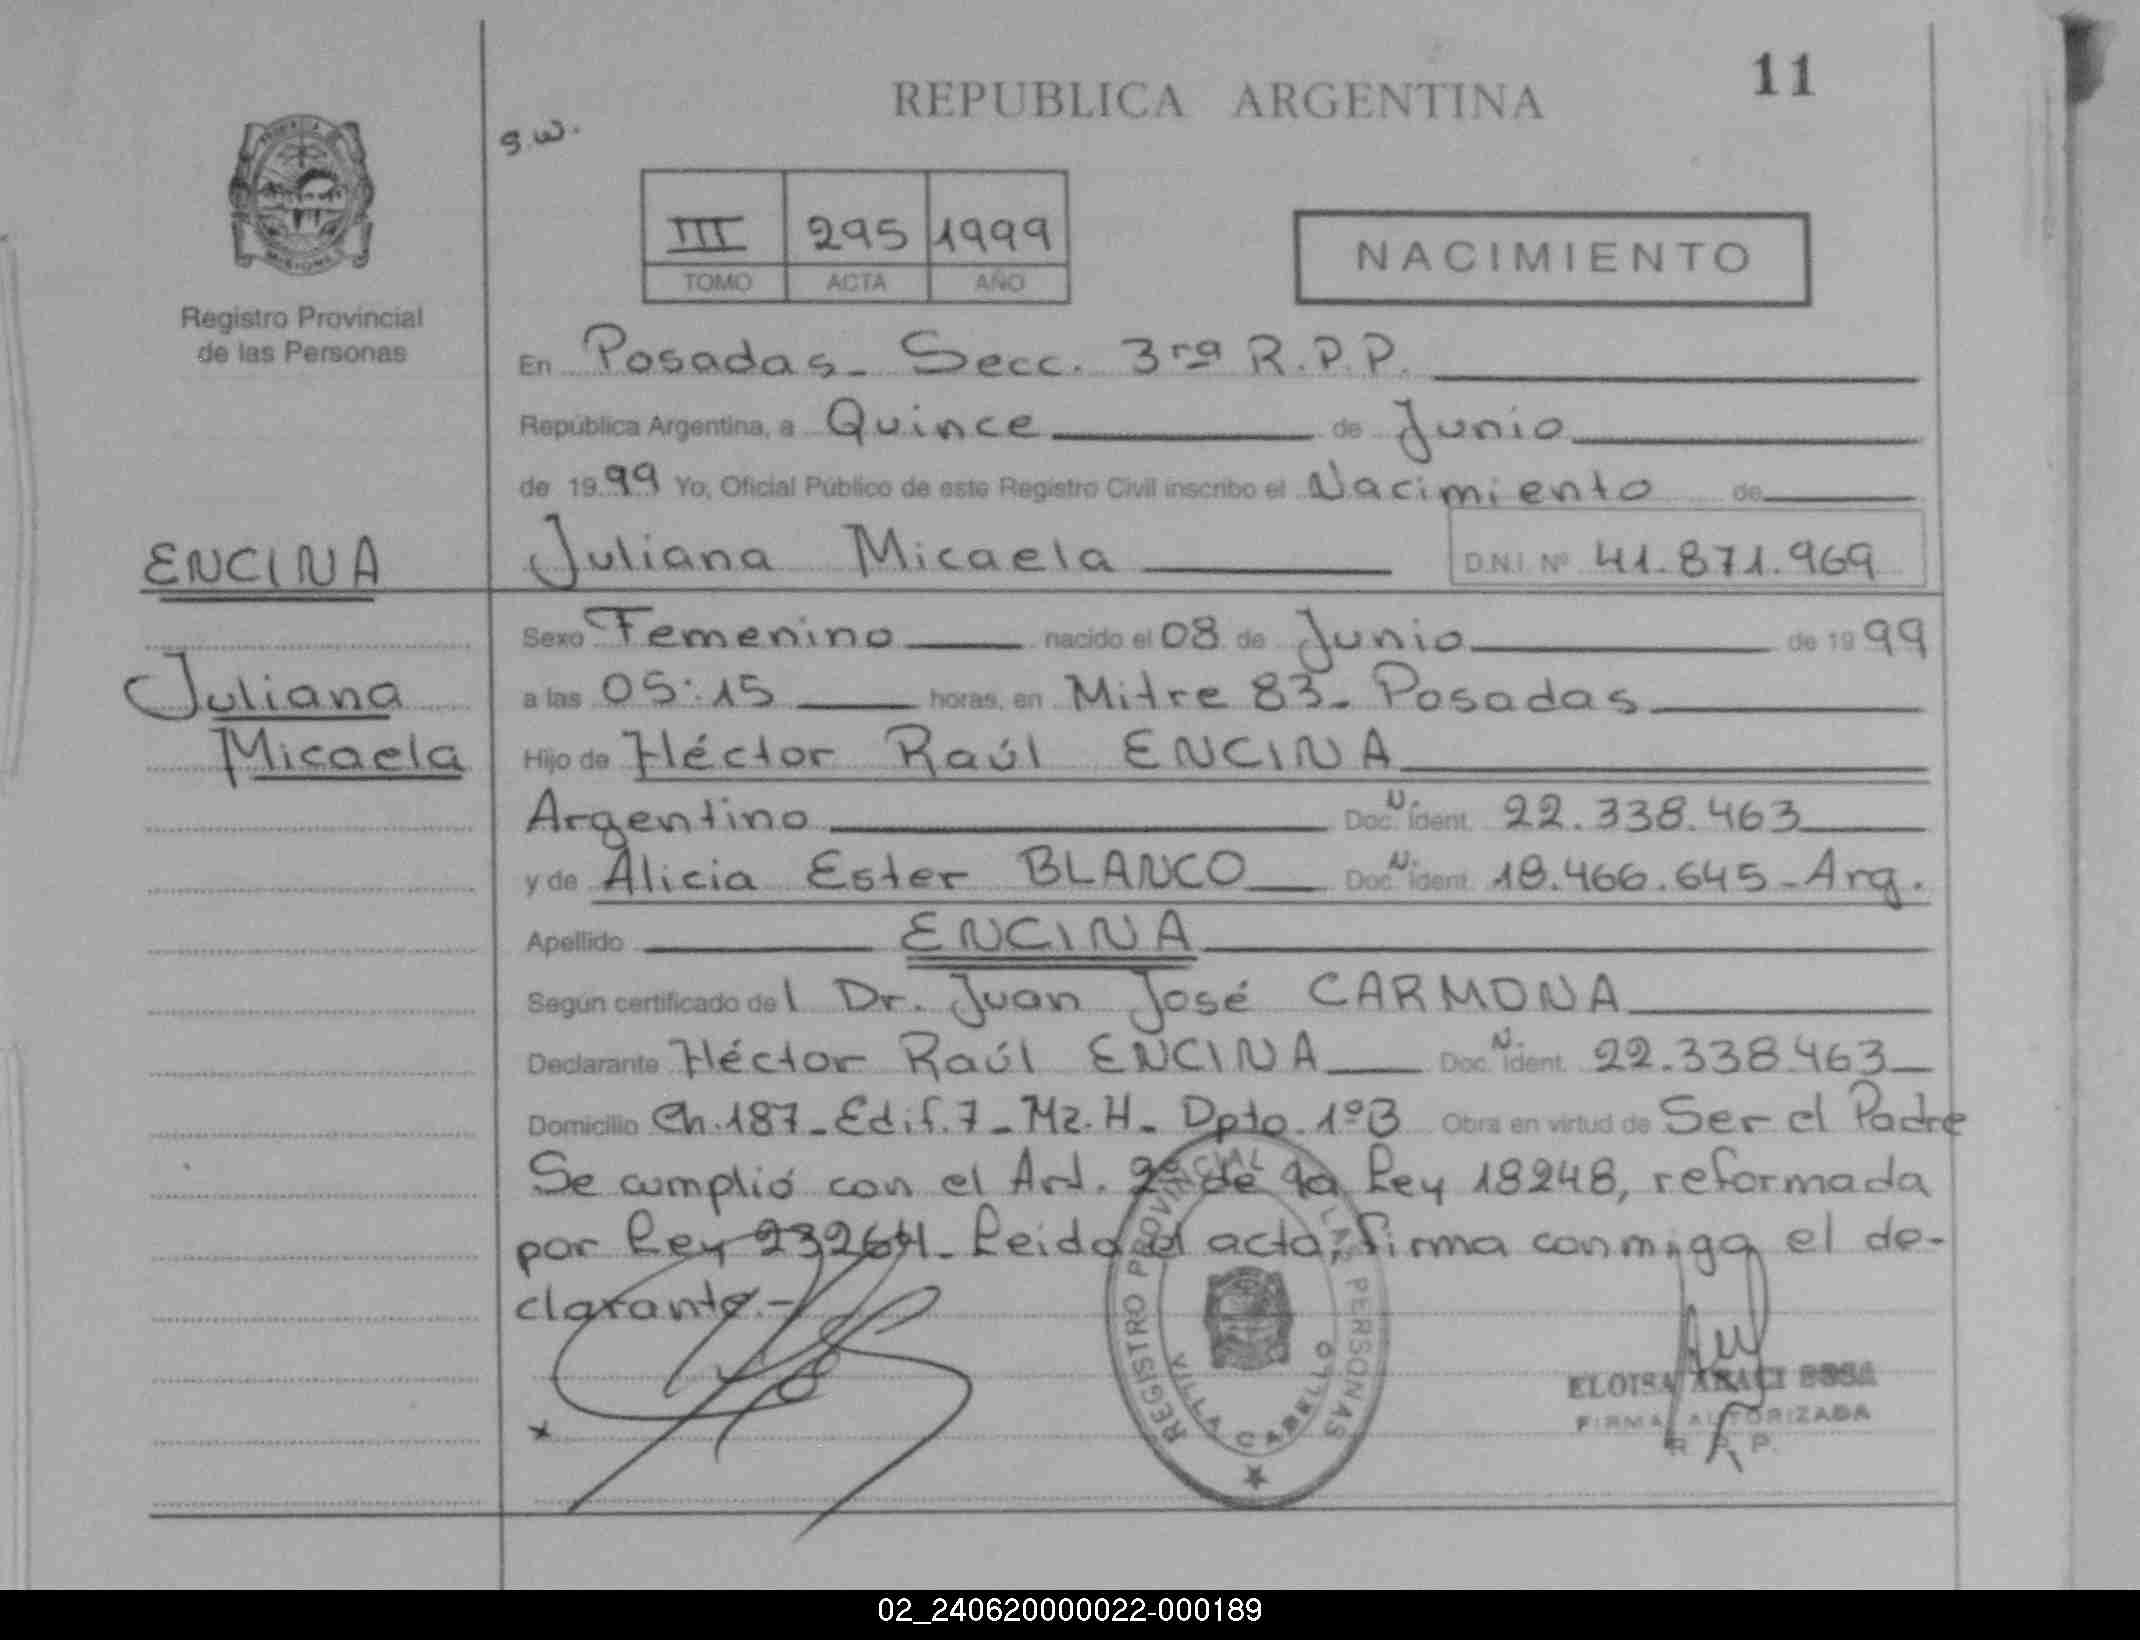 REPUBLICA ARGENTINA
11
s.w.
III 295 1999
TOMO ACTA AÑO
NACIMIENTO
MISIONES
Registro Provincial
de las Personas
En Posadas - Secc. 3ra R.P.P.
República Argentina, a Quince de Junio
de 1999 Yo, Oficial Público de este Registro Civil inscribo el Nacimiento de
ENCINA
Juliana Micaela D.N.I. Nº 41.871.969
Sexo Femenino nacido el 08 de Junio de 1999
Juliana
a las 05:15 horas, en Mitre 83 - Posadas
Micaela
Hijo de Héctor Raúl ENCINA
Argentino Doc. N. Ident. 22.338.463
y de Alicia Ester BLANCO Doc. N. Ident. 18.466.645 - Arg.
Apellido ENCINA
Según certificado del Dr. Juan José CARMONA
Declarante Héctor Raúl ENCINA Doc. N. Ident. 22.338.463
Domicilio Ch. 187 - Edif. 7 - Mz. H - Dpto. 1º B Obra en virtud de Ser el Padre
Se cumplió con el Art. 2º de la Ley 18248, reformada
por Ley 23264 - Leida el acta, firma conmigo el de-
clarante.-
REGISTRO PROVINCIAL LAS PERSONAS
VILLA CABELLO
ELOISA ARACI SOSA
FIRMA AUTORIZADA
R. P. P.
02_240620000022-000189